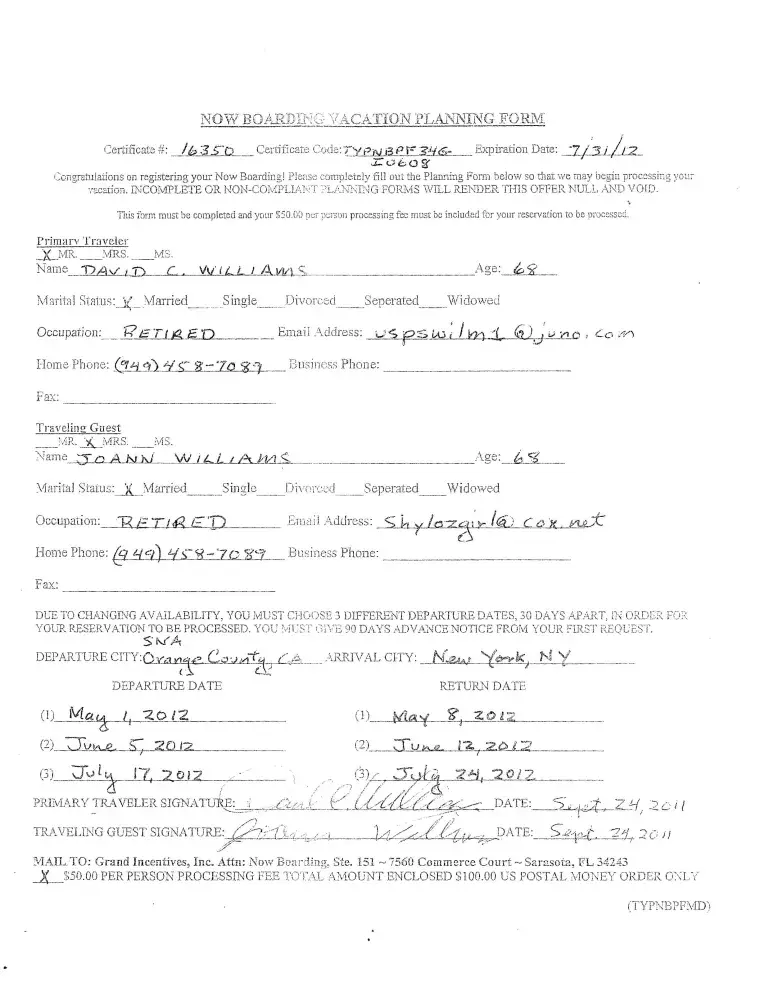 NOW BOARDING VACATION PLANNING FORM
Certificate #: 16350 Certificate Code: TYPNBPF346- Expiration Date: 7/31/12
I0608
Congratulations on registering your Now Boarding! Please completely fill out the Planning Form below so that we may begin processing your
vacation. INCOMPLETE OR NON-COMPLIANT PLANNING FORMS WILL RENDER THIS OFFER NULL AND VOID.
This form must be completed and your $50.00 per person processing fee must be included for your reservation to be processed.
Primary Traveler
X MR. ___MRS. ___MS.
Name DAVID C. WILLIAMS Age: 68
Marital Status: X Married____Single____Divorced____Seperated____Widowed
Occupation: RETIRED Email Address: uspswilm1@juno.com
Home Phone: (949) 458-7089 Business Phone: ____
Fax: ____
Traveling Guest
___MR. X MRS. ___MS.
Name JOANN WILLIAMS Age: 68
Marital Status: X Married____Single____Divorced____Seperated____Widowed
Occupation: RETIRED Email Address: Shylozgirl@cox.net
Home Phone: (949) 458-7089 Business Phone: ____
Fax: ____
DUE TO CHANGING AVAILABILITY, YOU MUST CHOOSE 3 DIFFERENT DEPARTURE DATES, 30 DAYS APART, IN ORDER FOR
YOUR RESERVATION TO BE PROCESSED. YOU MUST GIVE 90 DAYS ADVANCE NOTICE FROM YOUR FIRST REQUEST.
SNA
DEPARTURE CITY: Orange County, CA ARRIVAL CITY: New York, NY
DEPARTURE DATE RETURN DATE
(1) May 1, 2012 (1) May 8, 2012
(2) June 5, 2012 (2) June 12, 2012
(3) July 17, 2012 (3) July 24, 2012
PRIMARY TRAVELER SIGNATURE: David C Williams DATE: Sept. 24, 2011
TRAVELING GUEST SIGNATURE: Joann Williams DATE: Sept. 24, 2011
MAIL TO: Grand Incentives, Inc. Attn: Now Boarding, Ste. 151 ~ 7560 Commerce Court ~ Sarasota, FL 34243
X $50.00 PER PERSON PROCESSING FEE TOTAL AMOUNT ENCLOSED $100.00 US POSTAL MONEY ORDER ONLY
(TYPNBPFMD)